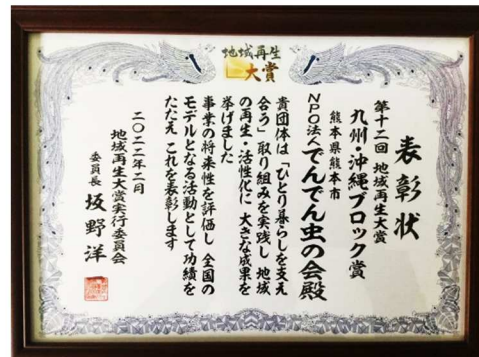 地域再生
大賞
表彰状
第十二回 地域再生大賞
九州・沖縄ブロック賞
熊本県熊本市
NPO法人でんでん虫の会殿
貴団体は「ひとり暮らしを支え
合う」取り組みを実践し 地域
の再生・活性化に 大きな成果を
挙げました
事業の将来性を評価し 全国の
モデルとなる活動として功績を
たたえ これを表彰します
二〇二二年二月
地域再生大賞実行委員会
委員長 坂野洋